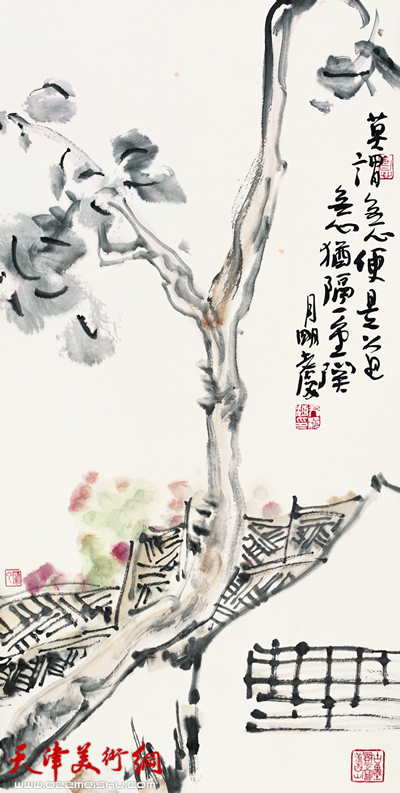 莫謂無心便是道
無心猶隔一重關
月明
天津美術網